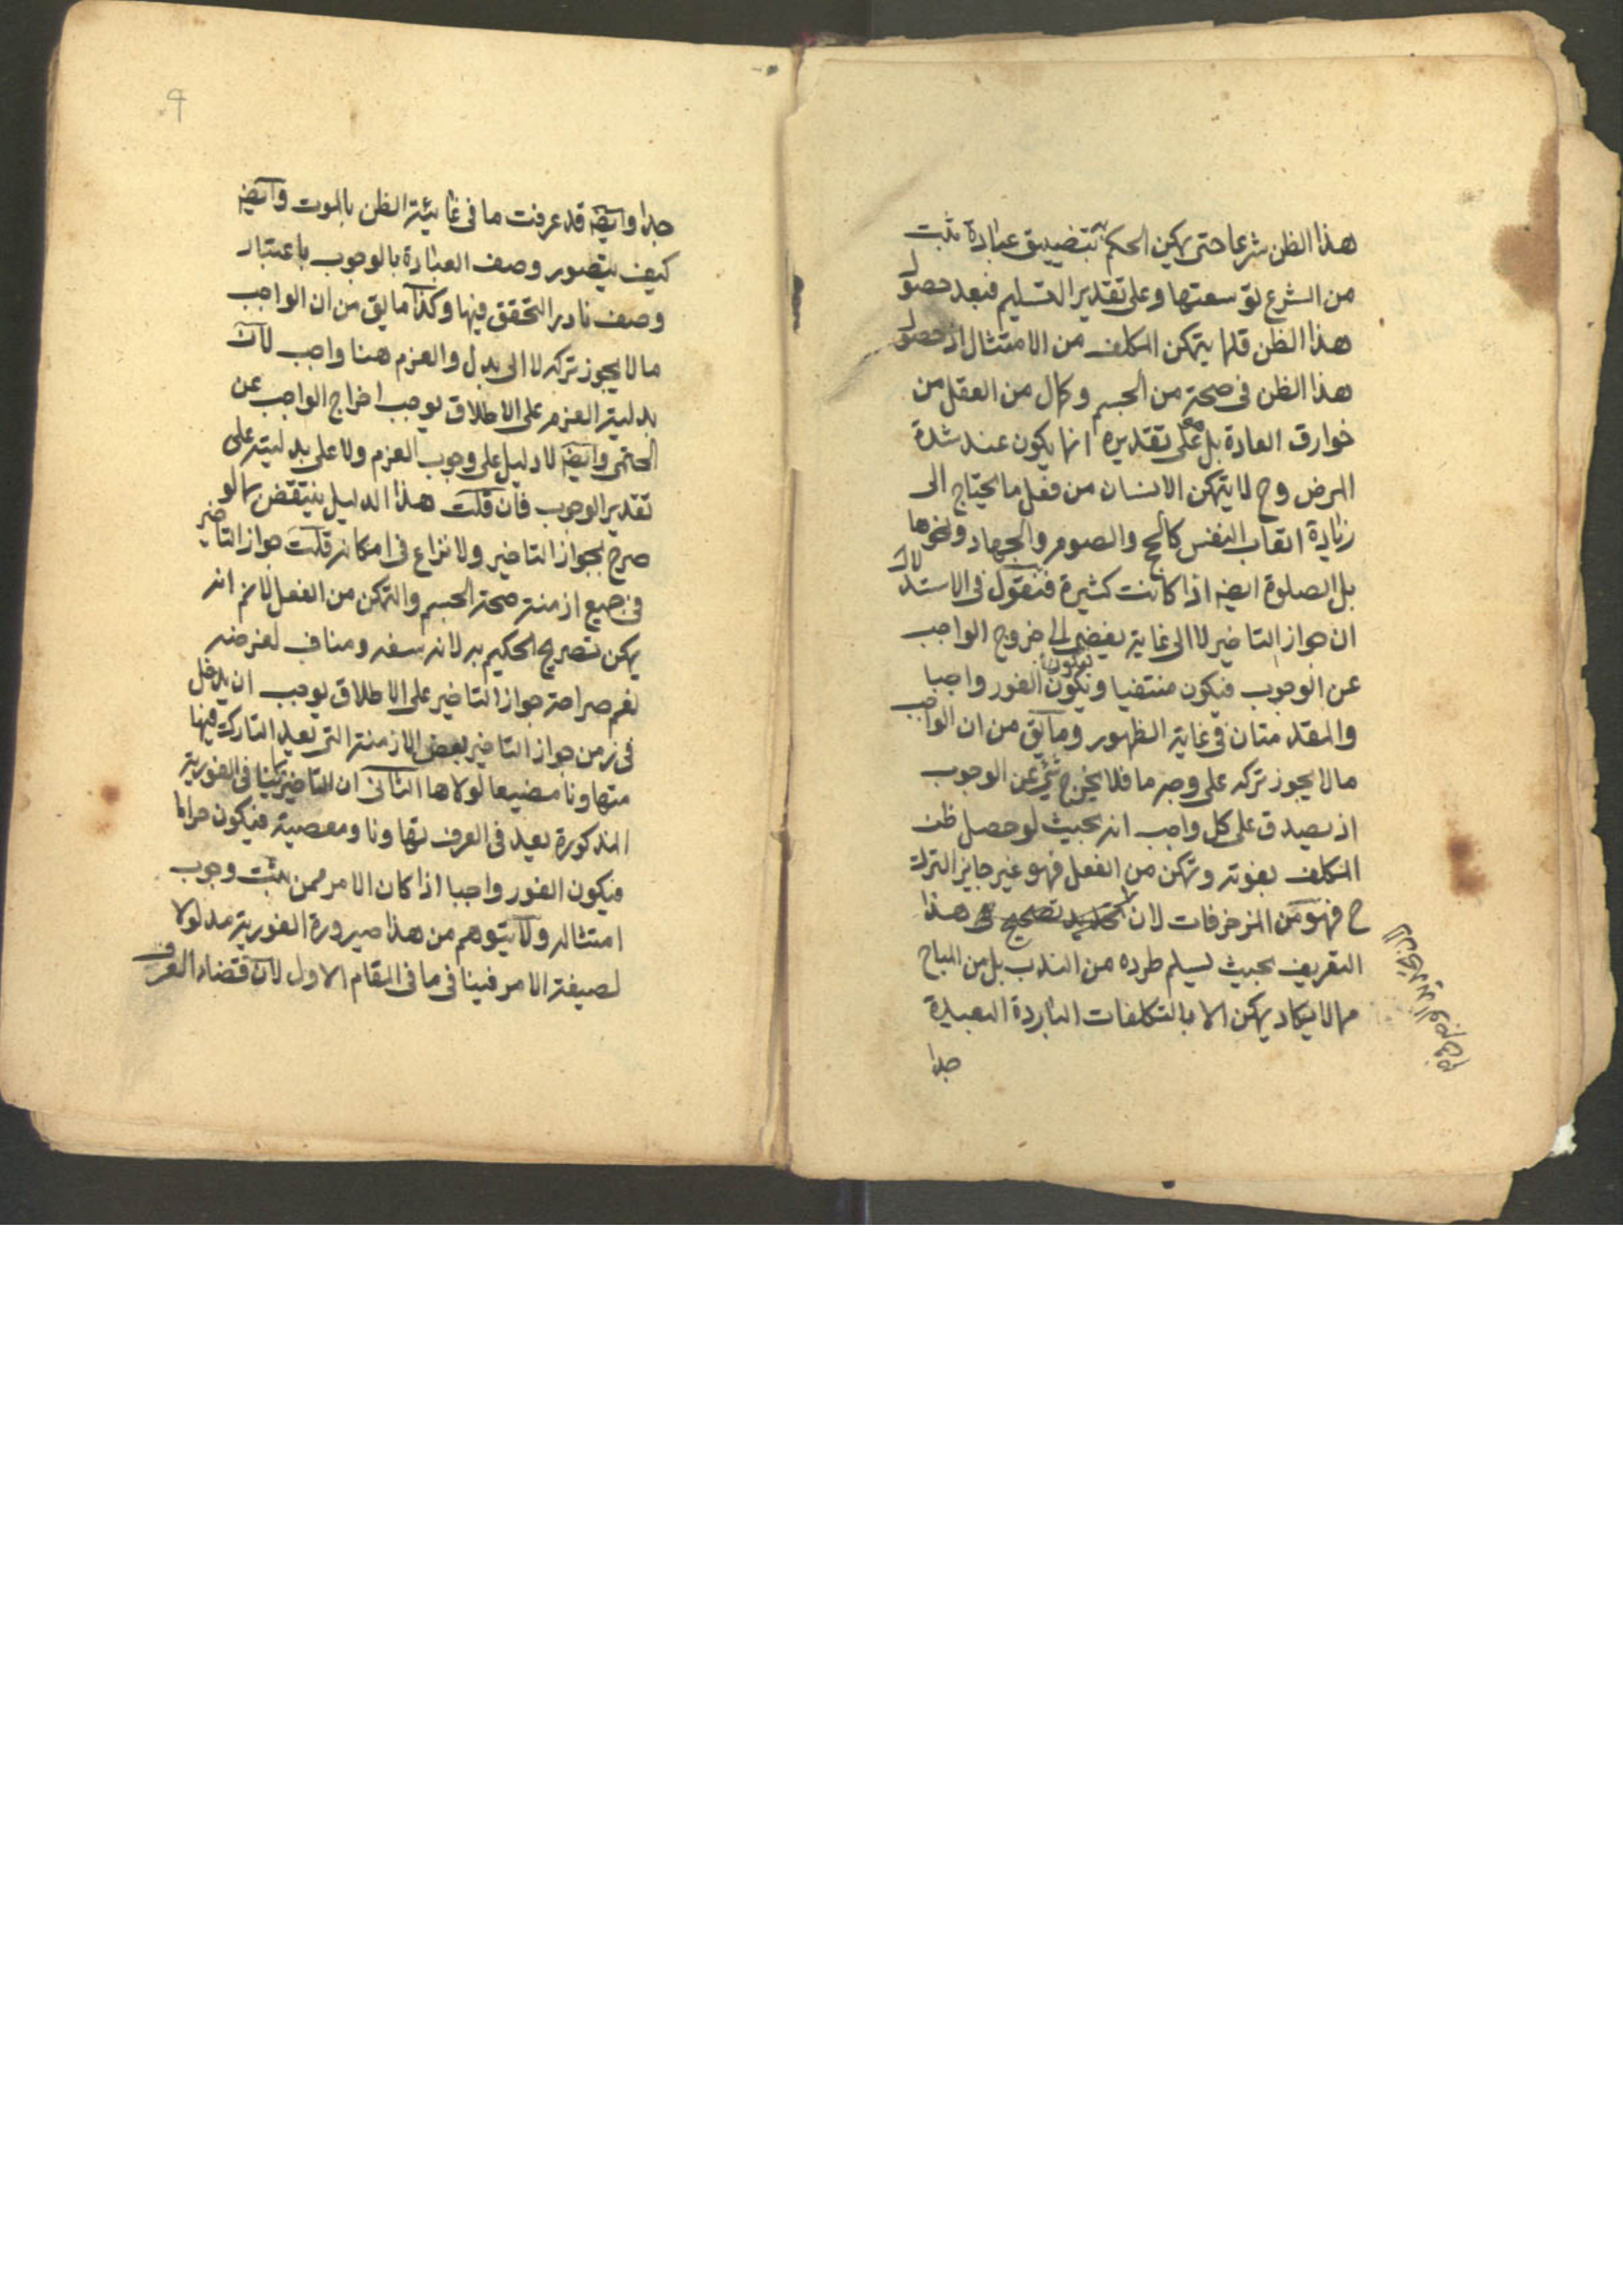 هذا الظن شرعا حتى يمكن الحكم بتضييق عبادة ثبت
من الشرع توسعتها وعلى تقدير التسليم فبعد حصول
هذا الظن قلما يتمكن المكلف من الامتثال اذ حصول
هذا الظن فى صحة من الجسم وكمال من العقل من
خوارق العادة بل على تقديره انما يكون عند شدة
المرض وح لا يتمكن الانسان من فعل ما يحتاج الى
زيادة اتعاب النفس كالحج والصوم والجهاد ونحوها
بل الصلوة ايضا اذا كانت كثيرة فنقول فى الاستدلال
ان جواز التاخير لا الى غاية يفضى الى خروج الواجب
عن الوجوب فيكون منتفيا ويكون الفور واجبا
والمقدمتان فى غاية الظهور وما يق من ان الواجب
ما لا يجوز تركه على وجه ما فلا يخرج شئ عن الوجوب
اذ يصدق على كل واجب انه بحيث لو حصل ظن
المكلف بفوته وتمكن من الفعل فهو غير جايز الترك
ح فهو من المزخرفات لان تصحيح هذا
التعريف بحيث يسلم طرده من الندب بل من المباح
مما لا يكاد يمكن الا بالتكلفات الباردة البعيدة
جدا
جدا وايضا قد عرفت ما فى غائية الظن بالموت وايضا
كيف يتصور وصف العبادة بالوجوب باعتبار
وصف نادر التحقق فيها وكذا ما يق من ان الواجب
ما لا يجوز تركه لا الى بدل والعزم هنا واجب لان
بدلية العزم على الاطلاق يوجب اخراج الواجب عن
الحتمى وايضا لا دليل على وجوب العزم ولا على بدليته على
تقدير الوجوب فان قلت هذا الدليل ينتقض بما لو
صرح بجواز التاخير ولا نزاع فى امكانه قلت جواز التاخير
فى جميع ازمنة صحة الجسم والتمكن من الفعل لا نم انه
يمكن تصريح الحكيم به لانه سفه ومناف لغرضه
نعم صراحة جواز التاخير على الاطلاق يوجب ان يدخل
فى زمن جواز التاخير بعض الازمنة التى يعد التارك فيها
متهاونا مضيعا لولاها الثانى ان التاخير فى الفورية
المذكورة يعد فى العرف تهاونا ومعصية فيكون حراما
فيكون الفور واجبا اذا كان الامر ممن يثبت وجوب
امتثاله ولا يتوهم من هذا صيرورة الفورية مدلولا
لصيغة الامر فينافى ما فى المقام الاول لان قضاء العرف